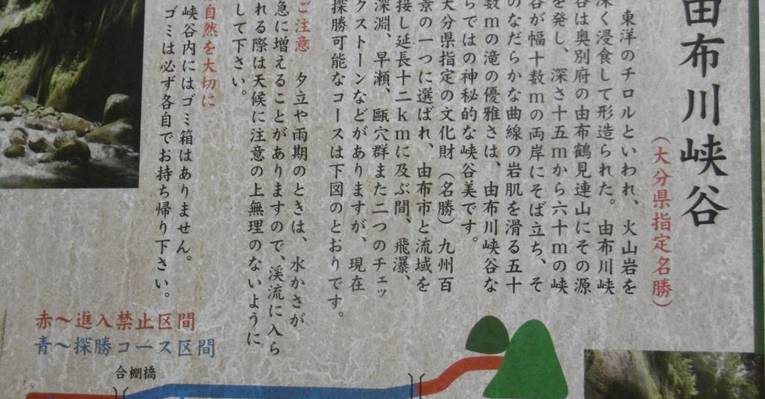 由布川峡谷
(大分県指定名勝)
東洋のチロルといわれ、火山岩を
深く浸食して形造られた。由布川峡
谷は奥別府の由布鶴見連山にその源
を発し、深さ十五mから六十mの峡
谷が幅十数mの両岸にそば立ち、そ
のなだらかな曲線の岩肌を滑る五十
数mの滝の優雅さは、由布川峡谷な
らではの神秘的な峡谷美です。
大分県指定の文化財(名勝)九州百
景の一つに選ばれ、由布市と流域を
接し延長十二kmに及ぶ間、飛瀑、
深淵、早瀬、甌穴群また二つのチェッ
クストーンなどがありますが、現在
探勝可能なコースは下図のとおりです。
ご注意 夕立や雨期のときは、水かさが
急に増えることがありますので、渓流に入ら
れる際は天候に注意の上無理のないように
して下さい。
自然を大切に
峡谷内にはゴミ箱はありません。
ゴミは必ず各自でお持ち帰り下さい。
赤～進入禁止区間
青～探勝コース区間
合棚橋